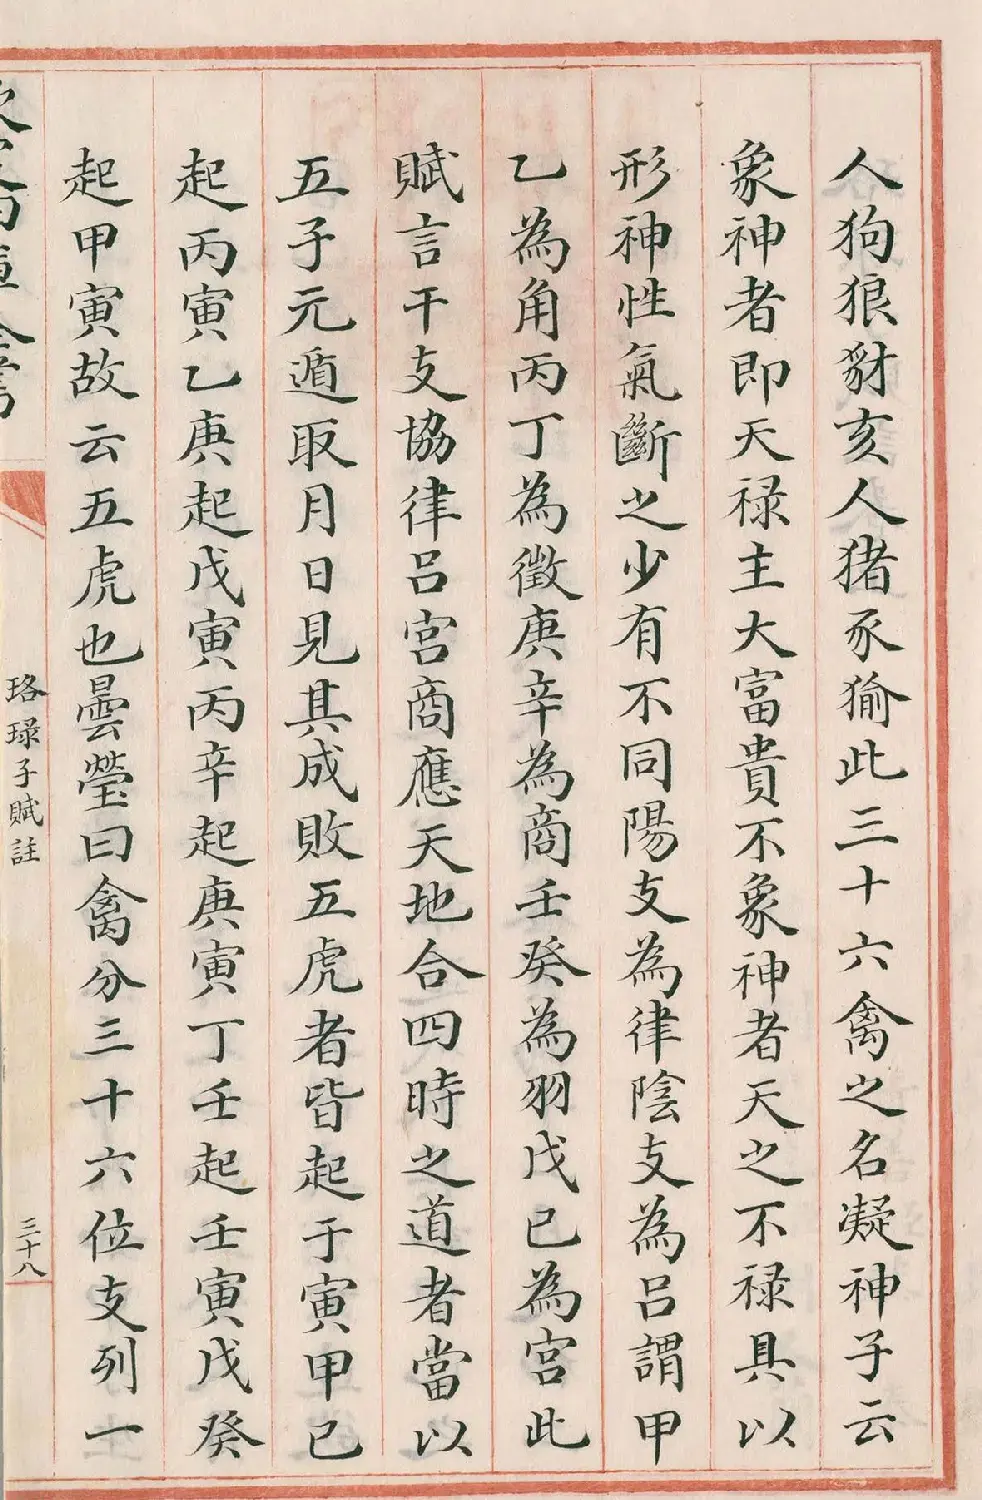 人狗狼豺亥人猪豕㺄此三十六禽之名凝神子云
象神者即天禄主大富貴不象神者天之不禄具以
形神性氣斷之少有不同陽支為律陰支為呂謂甲
乙為角丙丁為徵庚辛為商壬癸為羽戊已為宫此
賦言干支協律呂宫商應天地合四時之道者當以
五子元遁取月日見其成敗五虎者皆起于寅甲已
起丙寅乙庚起戊寅丙辛起庚寅丁壬起壬寅戊癸
起甲寅故云五虎也曇瑩曰禽分三十六位支列一
珞琭子賦註
三十八